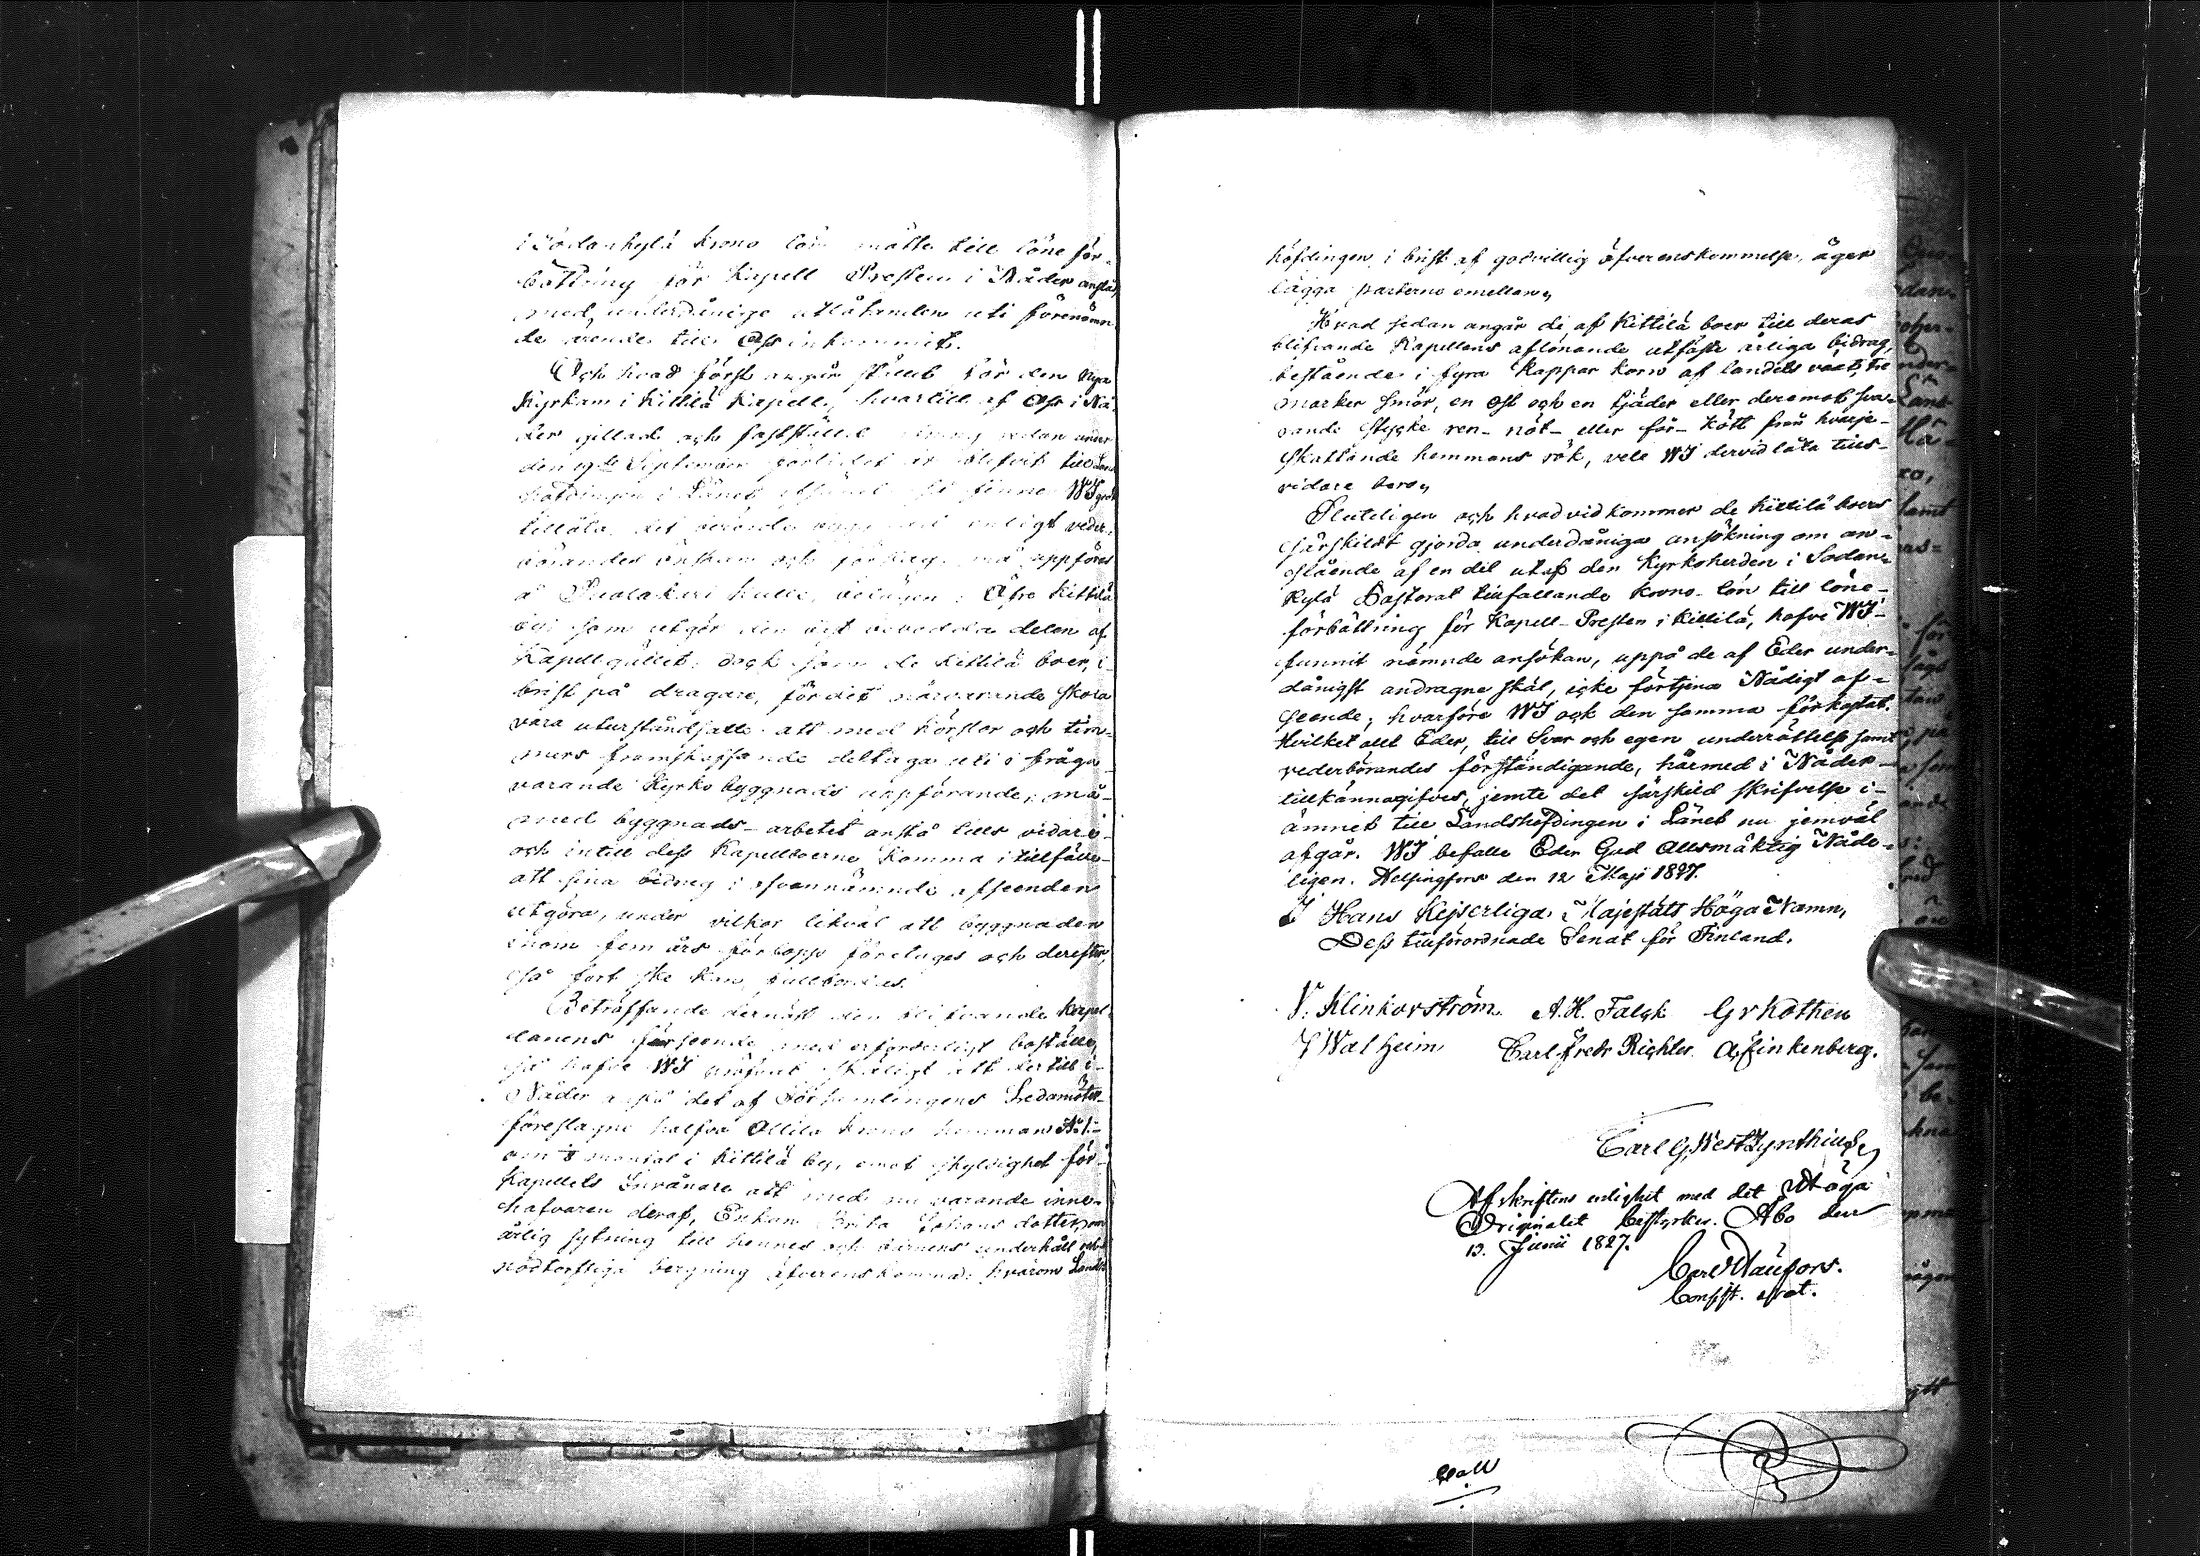 i Sodankylä krono lön måtte till löne för-
bättring för Kapell Presten i Nåder anslås
med underdånige utlåtanden uti förenämn
de ärende till Oss inkommit.
Och hvad först angår stället för den Nya
Kyrkan i Kittilä Kapell, hvartill af Oss i Nå
der gillad och fastställd ritning redan under
den 19de September förlidet år blifvit till Lands
höfdingen i Länet afsänd, så finne WJ godt
tillåta, det berörde byggnad enligt veder-
börandes önskan och förslag, må uppföras
å Pualakari kulle, belägen i Öfre Kittilä
by, som utgör den bebodda delen af
Kapellgället; dock som de Kittilä boer, i
brist på dragare, för det närvarande skola
vara uturståndsatte att med körslor och tim-
mers framskaffande deltaga uti i fråga
varande Kyrko byggnads uppförande, må
med byggnads-arbetet anstå tills vidare
och intill dess Kapellboerne komma i tillfälle
att sina bidrag i ofvannämnde afseenden
utgöra, under vilkor likväl att byggnaden
inom fem års förlopp företages och derefter,
så fort ske kan, fullbordas.
Beträffande dernäst den blifvande Kapel-
lanens förseende med erforderligt boställe,
så hafve WJ pröfvat skäligt att dertill i
Nåder anslå det af Församlingens Ledamöter
föreslagne halfva Ollila krono hemman No 1.
om mantal i Kittilä by, emot skyldighet för
Kapellets Invånare att med nu varande inne-
hafvaren deraf, Enkan Brita Johans dotter, om
årlig sytning till hennes och barnens underhåll och
nödtorftiga bergning öfverenskomma, hvarom Lands
höfdingen, i brist af godvillig öfverenskommelse, äger
lägga parterna emellan,
Hvad sedan angår de, af Kittilä boer till deras
blifvande Kapellans aflönande utfäste årliga bidrag,
bestående i fyra kappar korn af landets växt, tre
marker smör, en ost och en fjäder eller deremot sva-
rande stycke ren- nöt- eller får- kött från hvarje
skattande hemmans rök, vele WJ dervid låta tills-
vidare bero,
Sluteligen och hvad vidkommer de Kittilä boers
särskildt gjorda underdåniga ansökning om an-
slående af en del utaf den Kyrkoherden i Sodan-
kylä Pastorat tillfallande krono-lön till löne-
förbättring för Kapell-Presten i Kittilä, hafve WJ
funnit nämnde ansökan, uppå de af Eder under-
dånigst andragne skäl, icke förtjena Nådigt af-
seende; hvarföre WJ ock den samma förkastat.
Hvilket allt Eder, till Svar och egen underrättelse samt
vederbörandes förständigande, härmed i Nåder
tillkännagifves, jemte det särskild skrifvelse i
ämnet till Landshöfdingen i Länet nu jemväl
afgår. WJ befalle Eder Gud Allsmäktig Nåde-
ligen. Helsingfors den 12 Maji 1827.
I Hans Kejserliga Majestäts Höga Namn,
Dess tillförordnade Senat för Finland.
V. Klinkovström. A. H. Falck G v Kothen
J Walheim Carl Fredr Richter. A, Finkenberg.
Carl G, West Zynthius
Afskriftens enlighet med det Höga
Originalet bestyrkes. Åbo den
13. Junii 1827.
Carl
Consist. Not.